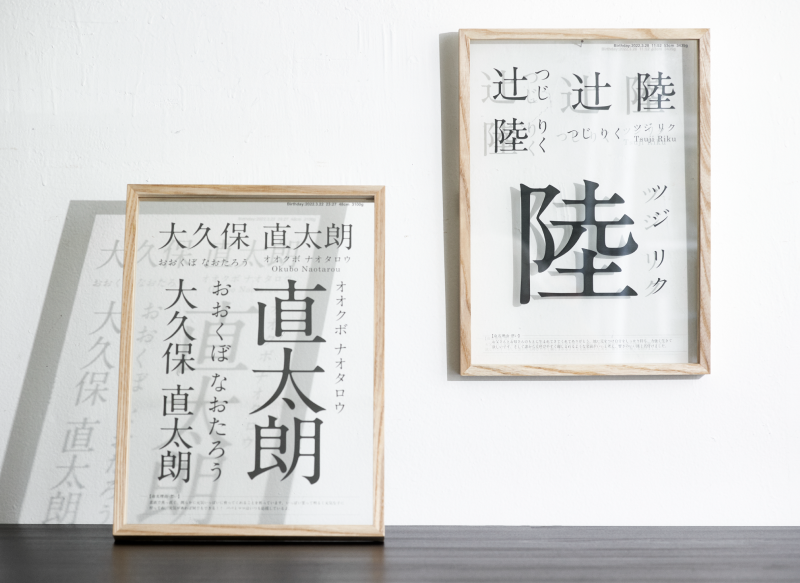 大久保 直太朗
おおくぼ なおたろう
オオクボ ナオタロウ
Okubo Naotarou
直太朗
オオクボ ナオタロウ
おおくぼ なおたろう
大久保 直太朗
辻 陸
つじ りく
辻 陸
つじ りく
ツジ リク
Tsuji Riku
陸
ツジ リク